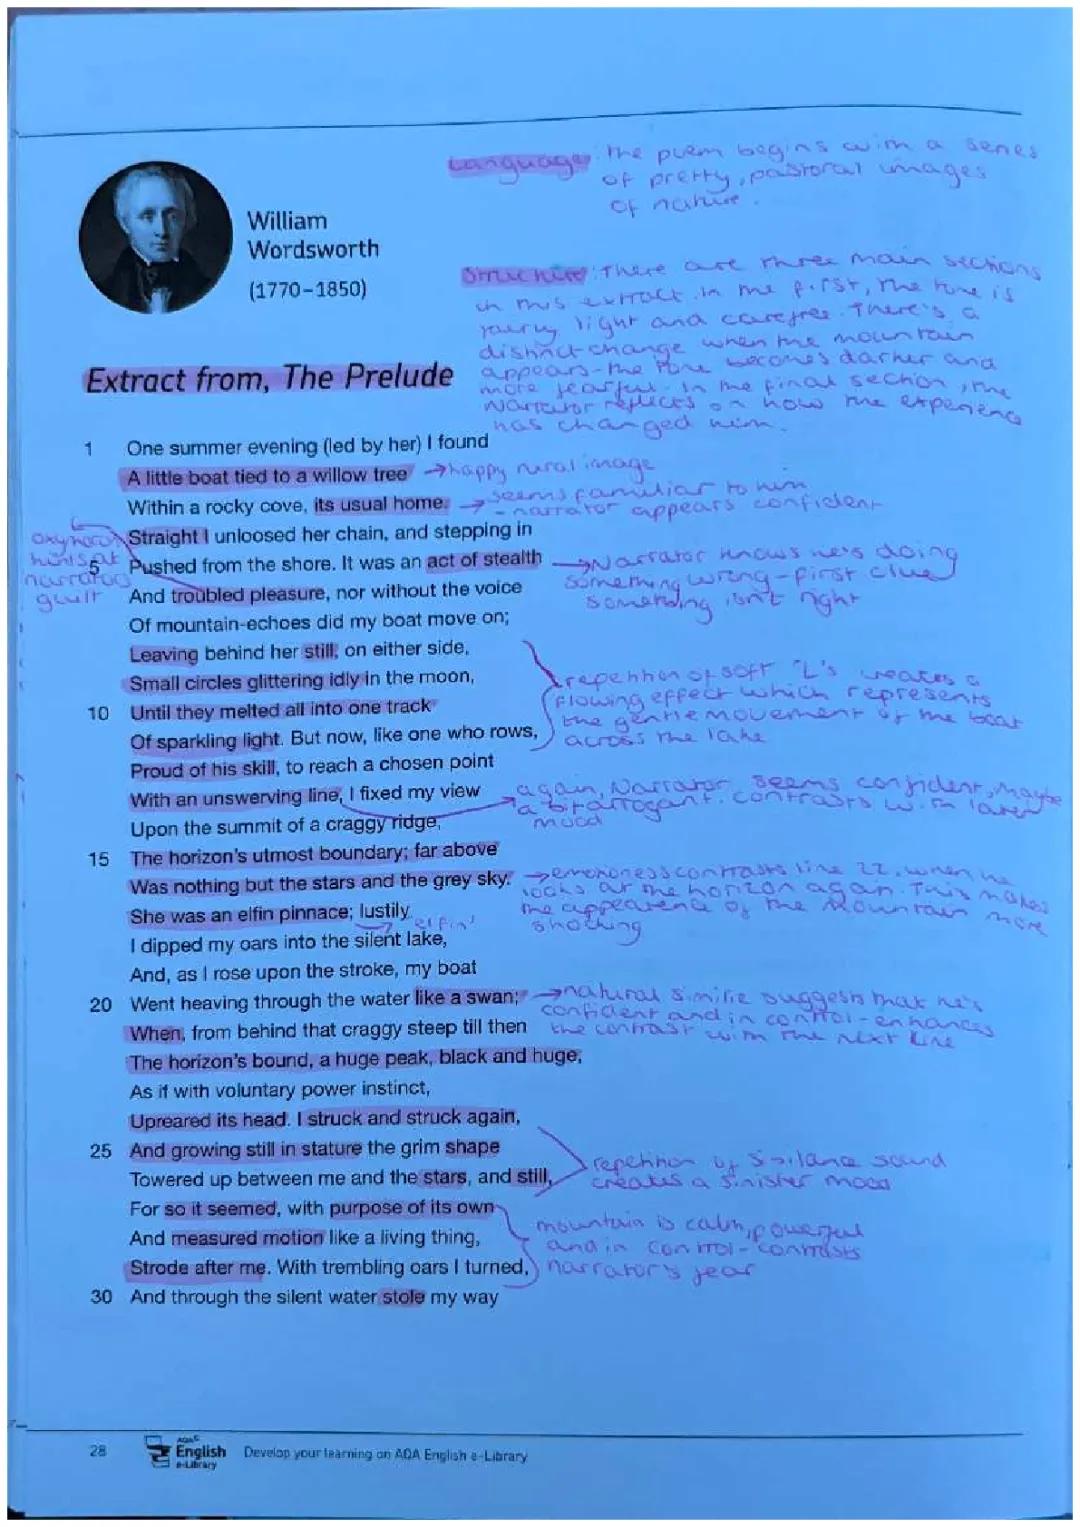 Language: The poem begins with a series
of pretty, pastoral images
of nature.
William
Wordsworth
(1770–1850)
Structure: There are three main sections
in this extract. In the first, the tone is
fairly light and carefree. There's a
distinct change when the mountain
appears - the tone becomes darker and
more fearful. In the final section, the
Narrator reflects on how the experience
has changed him.
Extract from, The Prelude
1 One summer evening (led by her) I found
A little boat tied to a willow tree → happy rural image
Within a rocky cove, its usual home. → seems familiar to him
- narrator appears confident
Straight I unloosed her chain, and stepping in
oxymoron
hints at
narrators
guilt
5 Pushed from the shore. It was an act of stealth → Narrator knows he's doing
something wrong - first clue
something isn't right
And troubled pleasure, nor without the voice
Of mountain-echoes did my boat move on;
Leaving behind her still, on either side,
Small circles glittering idly in the moon,
repetition of soft 'L's creates a
flowing effect which represents
the gentle movement of the boat
across the lake
10 Until they melted all into one track
Of sparkling light. But now, like one who rows,
Proud of his skill, to reach a chosen point
With an unswerving line, I fixed my view
again, Narrator seems confident, maybe
a bit arrogant. contrasts with later
mood
Upon the summit of a craggy ridge,
15 The horizon's utmost boundary; far above
Was nothing but the stars and the grey sky. → emptiness contrasts line 22, when he
looks at the horizon again. This makes
the appearence of the Mountain more
shocking
She was an elfin pinnace; lustily
elfin'
I dipped my oars into the silent lake,
And, as I rose upon the stroke, my boat
20 Went heaving through the water like a swan; → natural simile suggests that he's
confident and in control - enhances
the contrast with the next line
When, from behind that craggy steep till then
The horizon's bound, a huge peak, black and huge,
As if with voluntary power instinct,
Upreared its head. I struck and struck again,
25 And growing still in stature the grim shape
Towered up between me and the stars, and still,
repetition of sibilance sound
creates a sinister mood
For so it seemed, with purpose of its own
And measured motion like a living thing,
Strode after me. With trembling oars I turned,
mountain is calm, powerful
and in control - contrasts
narrator's fear
30 And through the silent water stole my way
28
AQA
English
e-Library
Develop your learning on AQA English e-Library